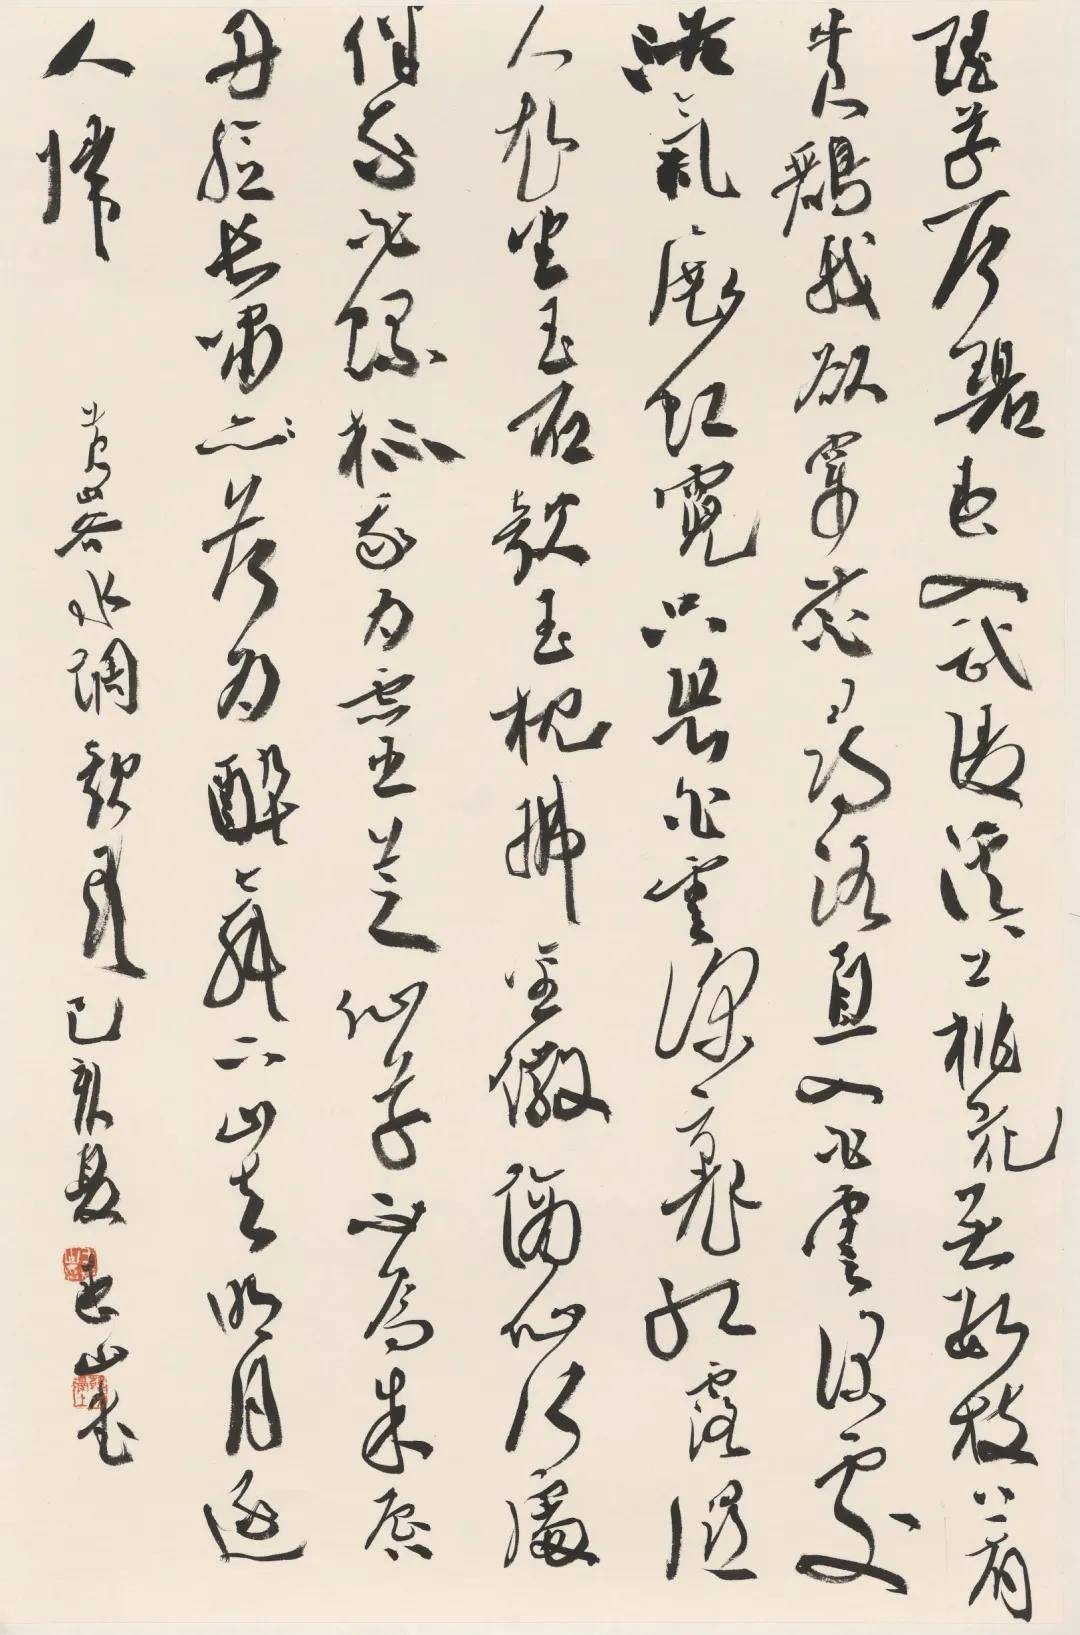 瑶草一何碧春入武陵溪溪上桃花无数枝上有
黄鸝我欲穿花尋路直入白雲深處
浩氣展虹霓只恐白雲深裏紅露濕
人衣坐玉石欹玉枕拂金徽謫仙何處
伴我白螺杯我为靈芝仙草不为朱唇
丹臉长嘯亦何为醉舞下山去明月逐
人歸
黄山谷水調歌頭己亥夏